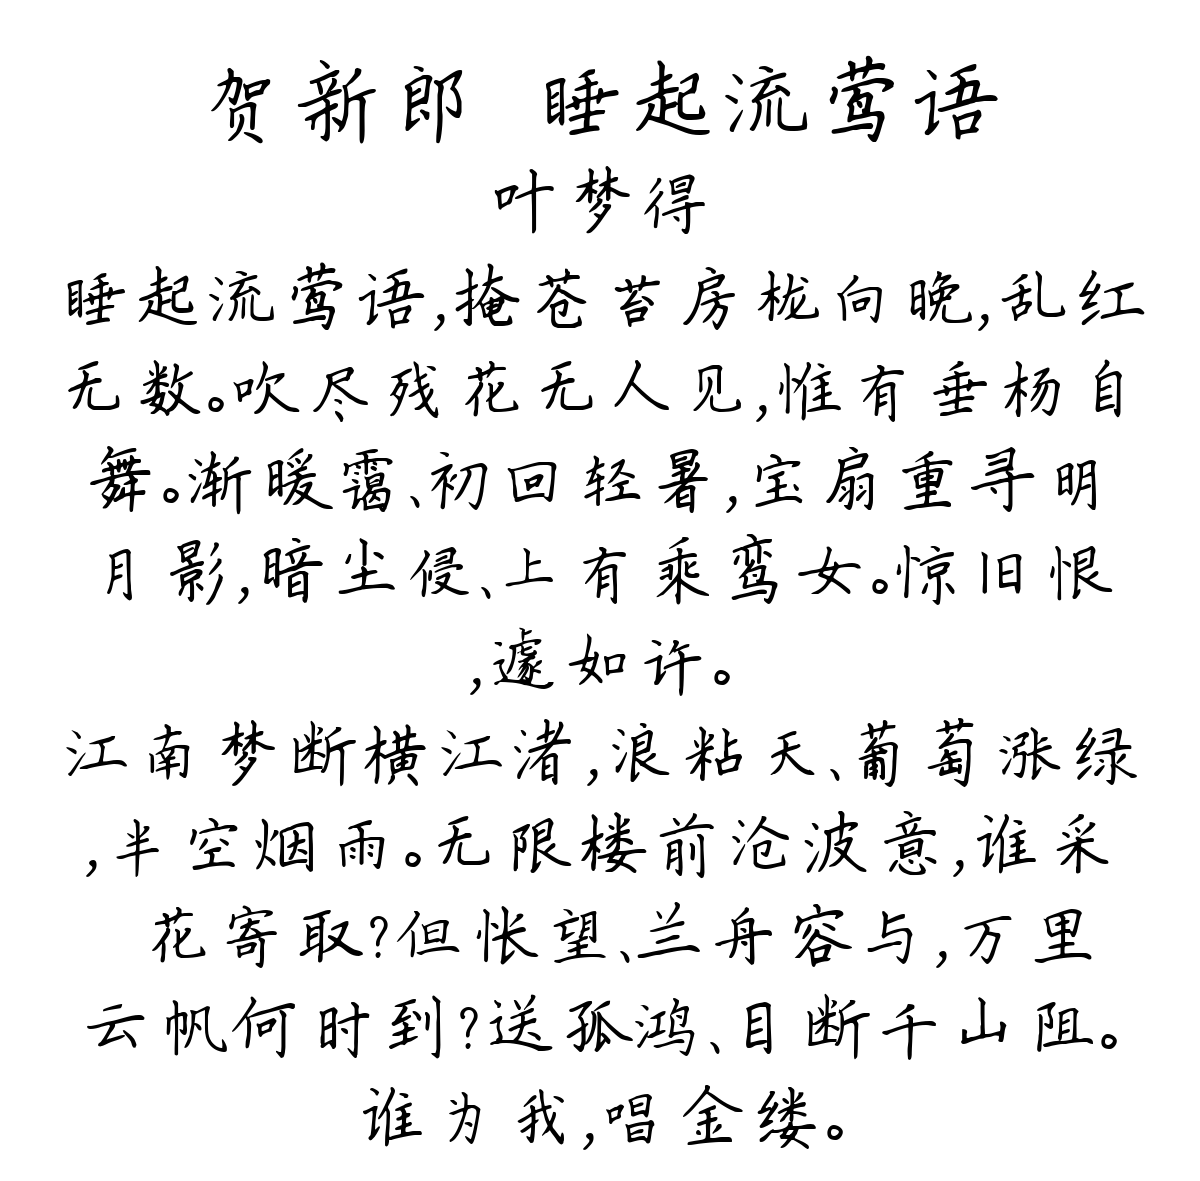 贺新郎 睡起流莺语
叶梦得
睡起流莺语,掩苍苔房栊向晚,乱红
无数。吹尽残花无人见,惟有垂杨自
舞。渐暖霭、初回轻暑,宝扇重寻明
月影,暗尘侵、上有乘鸾女。惊旧恨
,遽如许。
江南梦断横江渚,浪粘天、葡萄涨绿
,半空烟雨。无限楼前沧波意,谁采
花寄取?但怅望、兰舟容与,万里
云帆何时到?送孤鸿、目断千山阻。
谁为我,唱金缕。